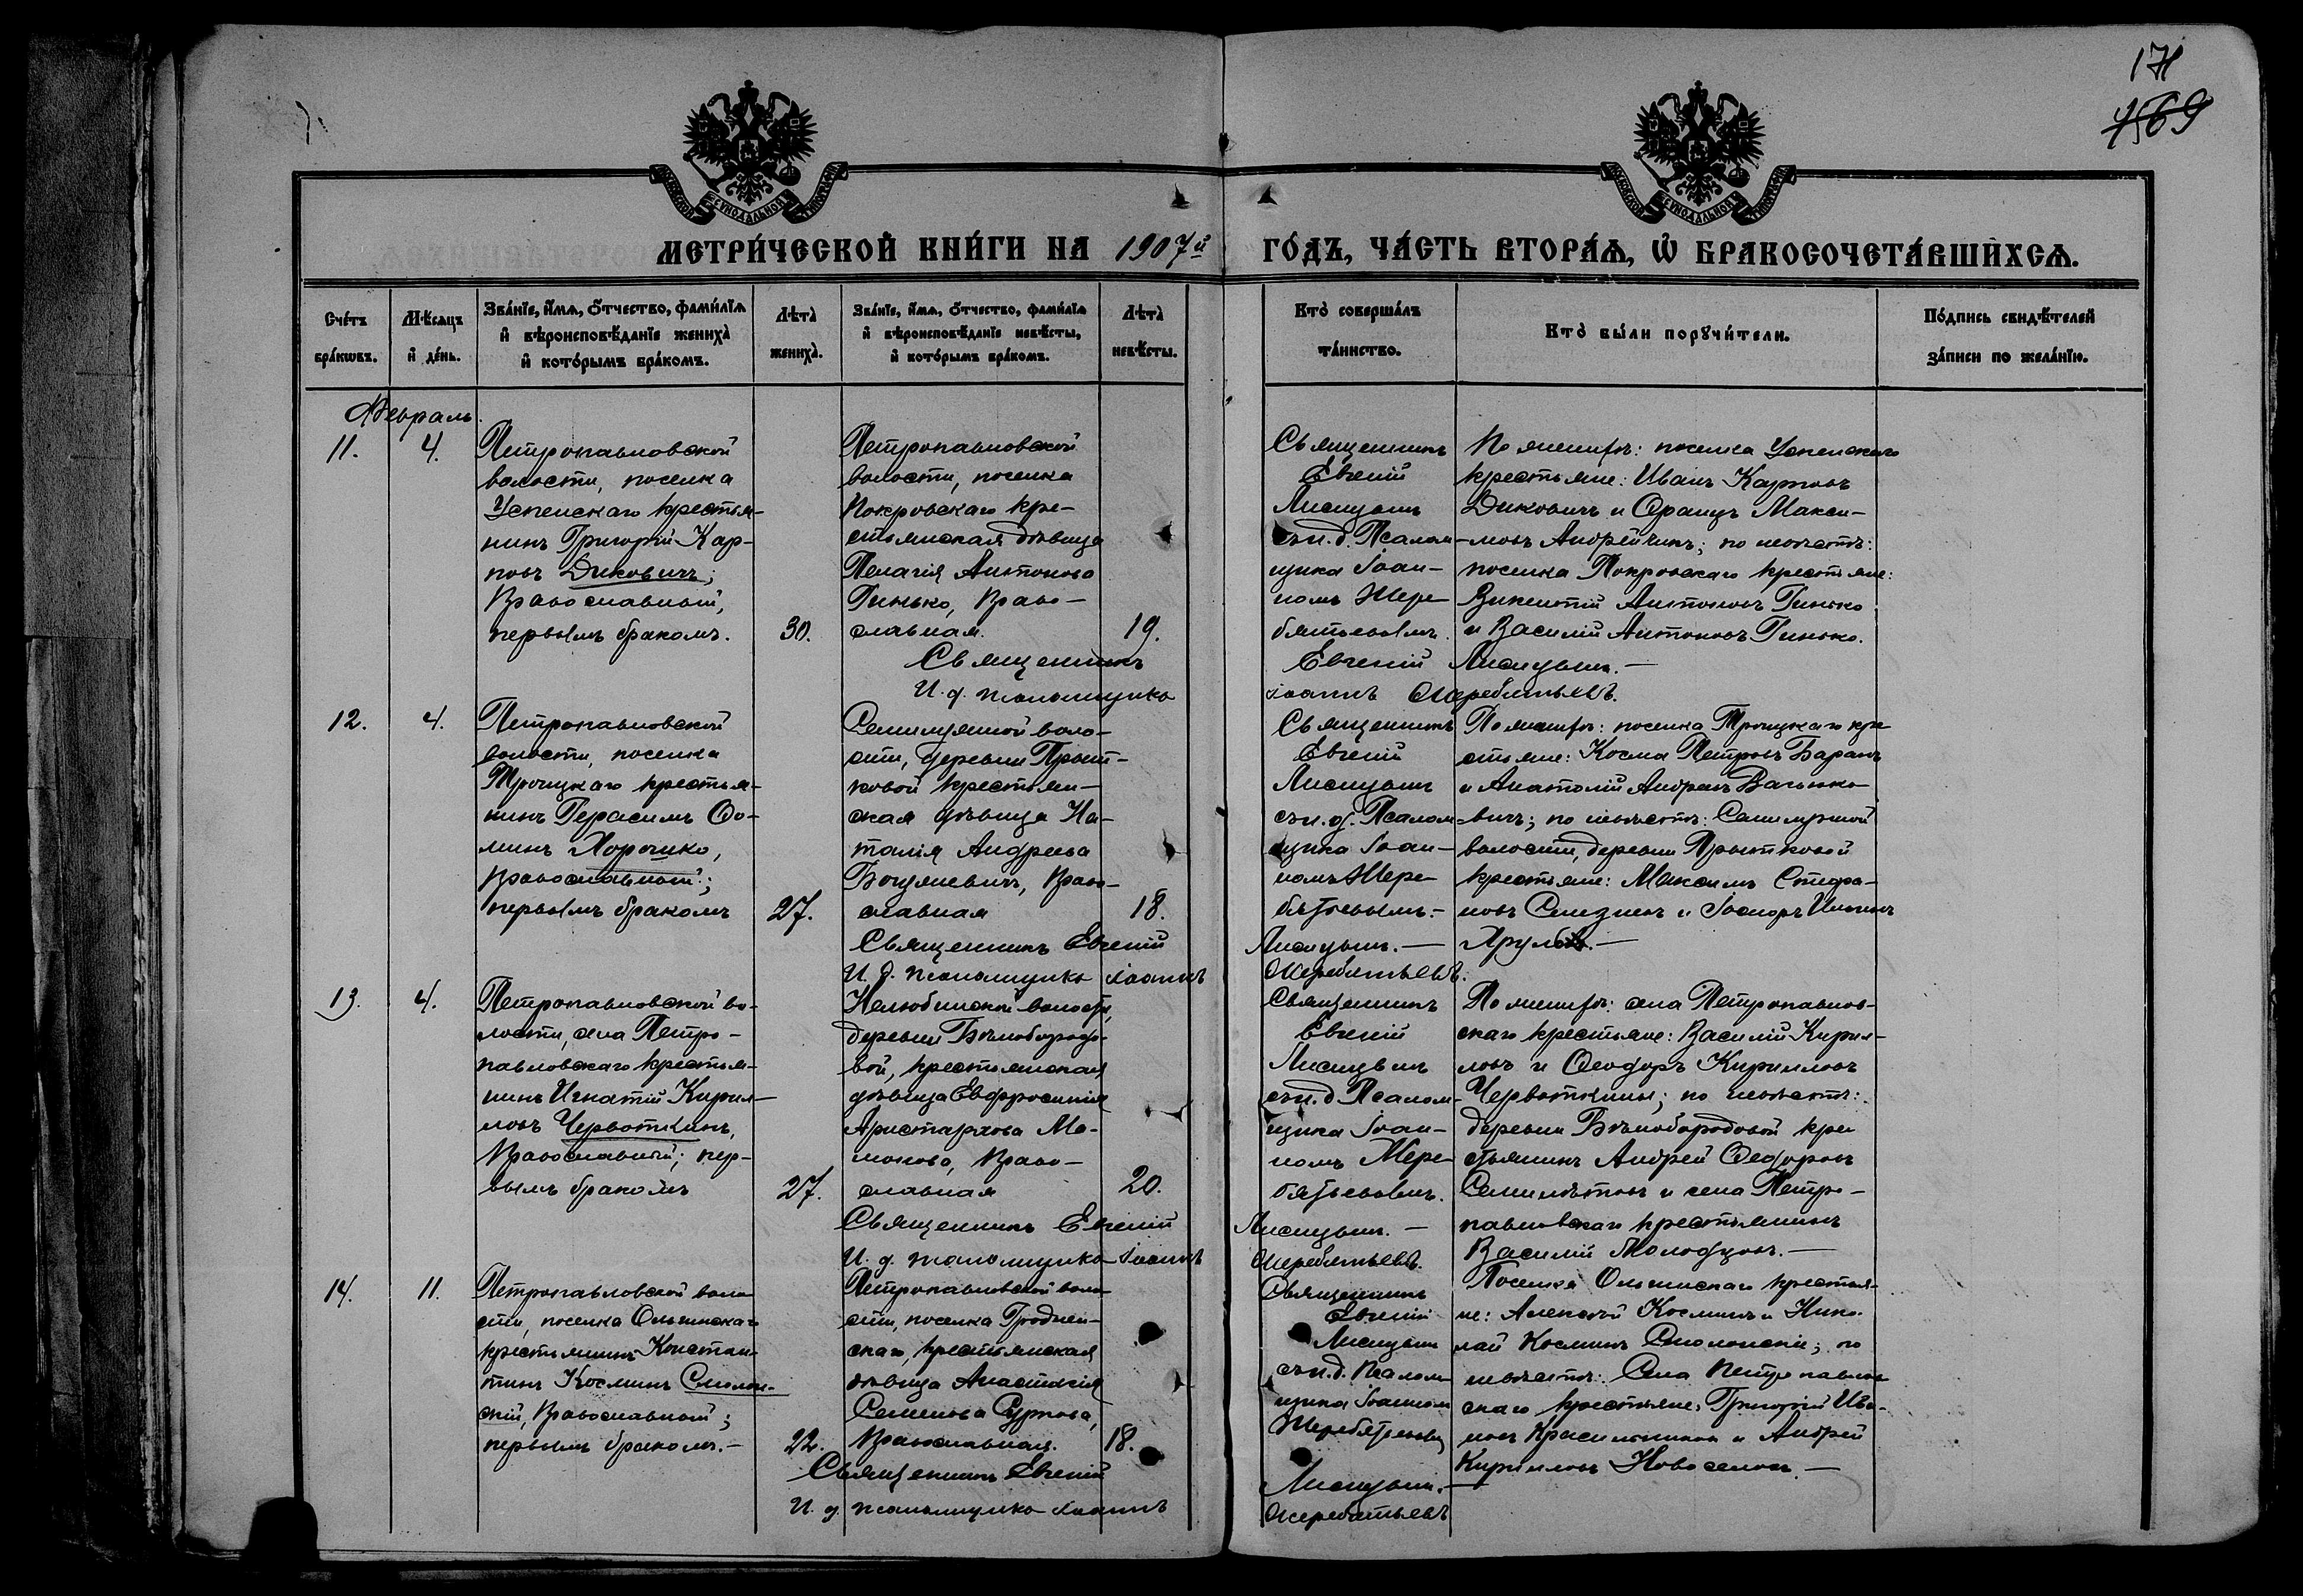 171
169
МЕТРИЧЕСКОЙ КНИГИ НА 1907й ГОДЪ, ЧАСТЬ ВТОРАЯ, Ѡ БРАКОСОЧЕТАВШИХСЯ.
Счетъ браковъ.
Мѣсяцъ и день.
Званіе, имя, отчество, фамилія и вѣроисповѣданіе жениха и которымъ бракомъ.
Лѣта жениха.
Званіе, имя, отчество, фамилія и вѣроисповѣданіе невѣсты, и которымъ бракомъ.
Лѣта невѣсты.
Кто совершалъ таинство.
Кто были поручители.
Подпись свидѣтелей записи по желанію.
Февраль.
11.
4.
Петропавловской
волости, поселка
Успенскаго крестья-
нинъ Григорій Кар-
повъ Диковичъ;
Православный,
первымъ бракомъ.
30.
Петропавловской
волости, поселка
Покровскаго кре-
стьянская дѣвица
Пелагія Антонова
Гинько, Право-
славная.
19.
Священникъ
Евгеній
Лисицынъ
съ и. д. Псалом-
щика Іоан-
номъ Жере-
бятьевымъ.
По женихѣ: поселка Успенскаго
крестьяне: Иванъ Карповъ
Диковичъ и Францъ Макси-
мовъ Андрейчикъ; по невѣстѣ:
поселка Покровскаго крестьяне:
Викентій Антоновъ Гинько
и Василій Антоновъ Гинько.
Священникъ Евгеній Лисицынъ.
И. д. псаломщика Іоаннъ Жеребятьевъ.
12.
4.
Петропавловской
волости, поселка
Троицкаго крестья-
нинъ Герасимъ Фо-
минъ Хорошко,
Православный;
первымъ бракомъ
27.
Семилужной воло-
сти, деревни Прыт-
ковой крестьян-
ская дѣвица На-
талія Андреева
Православная
18.
Священникъ
Евгеній
Лисицынъ
съ и. д. Псалом-
щика Іоан-
номъ Жере-
бятьевымъ.
По женихѣ: поселка Троицкаго кре-
стьяне: Косма Петровъ Баранъ
и Анатолій Андреевъ
по невѣстѣ: Семилужной
волости, деревни Прытковой
крестьяне: Максимъ Стефа-
новъ и Ильинъ
Священникъ Евгеній Лисицынъ.
И. д. псаломщика Іоаннъ Жеребятьевъ.
13.
4.
Петропавловской во-
лости, села Петро-
павловскаго крестья-
нинъ Игнатій Кирил-
ловъ Червоткинъ,
Православный; пер-
вымъ бракомъ
27.
Нелюбинской волости,
деревни Бѣлобородо-
вой, крестьянская
дѣвица Евфросинія
Аристархова Мо-
Право-
славная
20.
Священникъ
Евгеній
Лисицынъ
съ и. д. Псалом-
щика Іоан-
номъ Жере-
бятьевымъ.
По женихѣ: села Петропавлов-
скаго крестьяне: Василій Кирил-
ловъ и Ѳеодоръ Кирилловъ
Червоткины; по невѣстѣ:
деревни Бѣлобородовой кре-
стьянинъ Андрей Ѳеодоровъ
и села Петро-
павловскаго крестьянинъ
Василій Молодцовъ.
Священникъ Евгеній Лисицынъ.
И. д. псаломщика Іоаннъ Жеребятьевъ.
14.
11.
Петропавловской воло-
сти, поселка Ольгинскаго
крестьянинъ Констан-
тинъ Косминъ Смолон-
скій, Православный;
первымъ бракомъ.
22.
Петропавловской воло-
сти, поселка Гроднен-
скаго, крестьянская
дѣвица Анастасія
Семенова Суркова,
Православная.
18.
Священникъ
Евгеній
Лисицынъ
съ и. д. Псалом-
щика Іоанномъ
Жеребятьевымъ
Поселка Ольгинскаго крестья-
не: Алексѣй Косминъ и Нико-
лай Косминъ Смолонскіе; по
невѣстѣ: Села Петропавлов-
скаго крестьяне: Григорій Ива-
новъ Красильниковъ и Андрей
Кирилловъ Новоселовъ.
Священникъ Евгеній Лисицынъ.
И. д. псаломщика Іоаннъ Жеребятьевъ